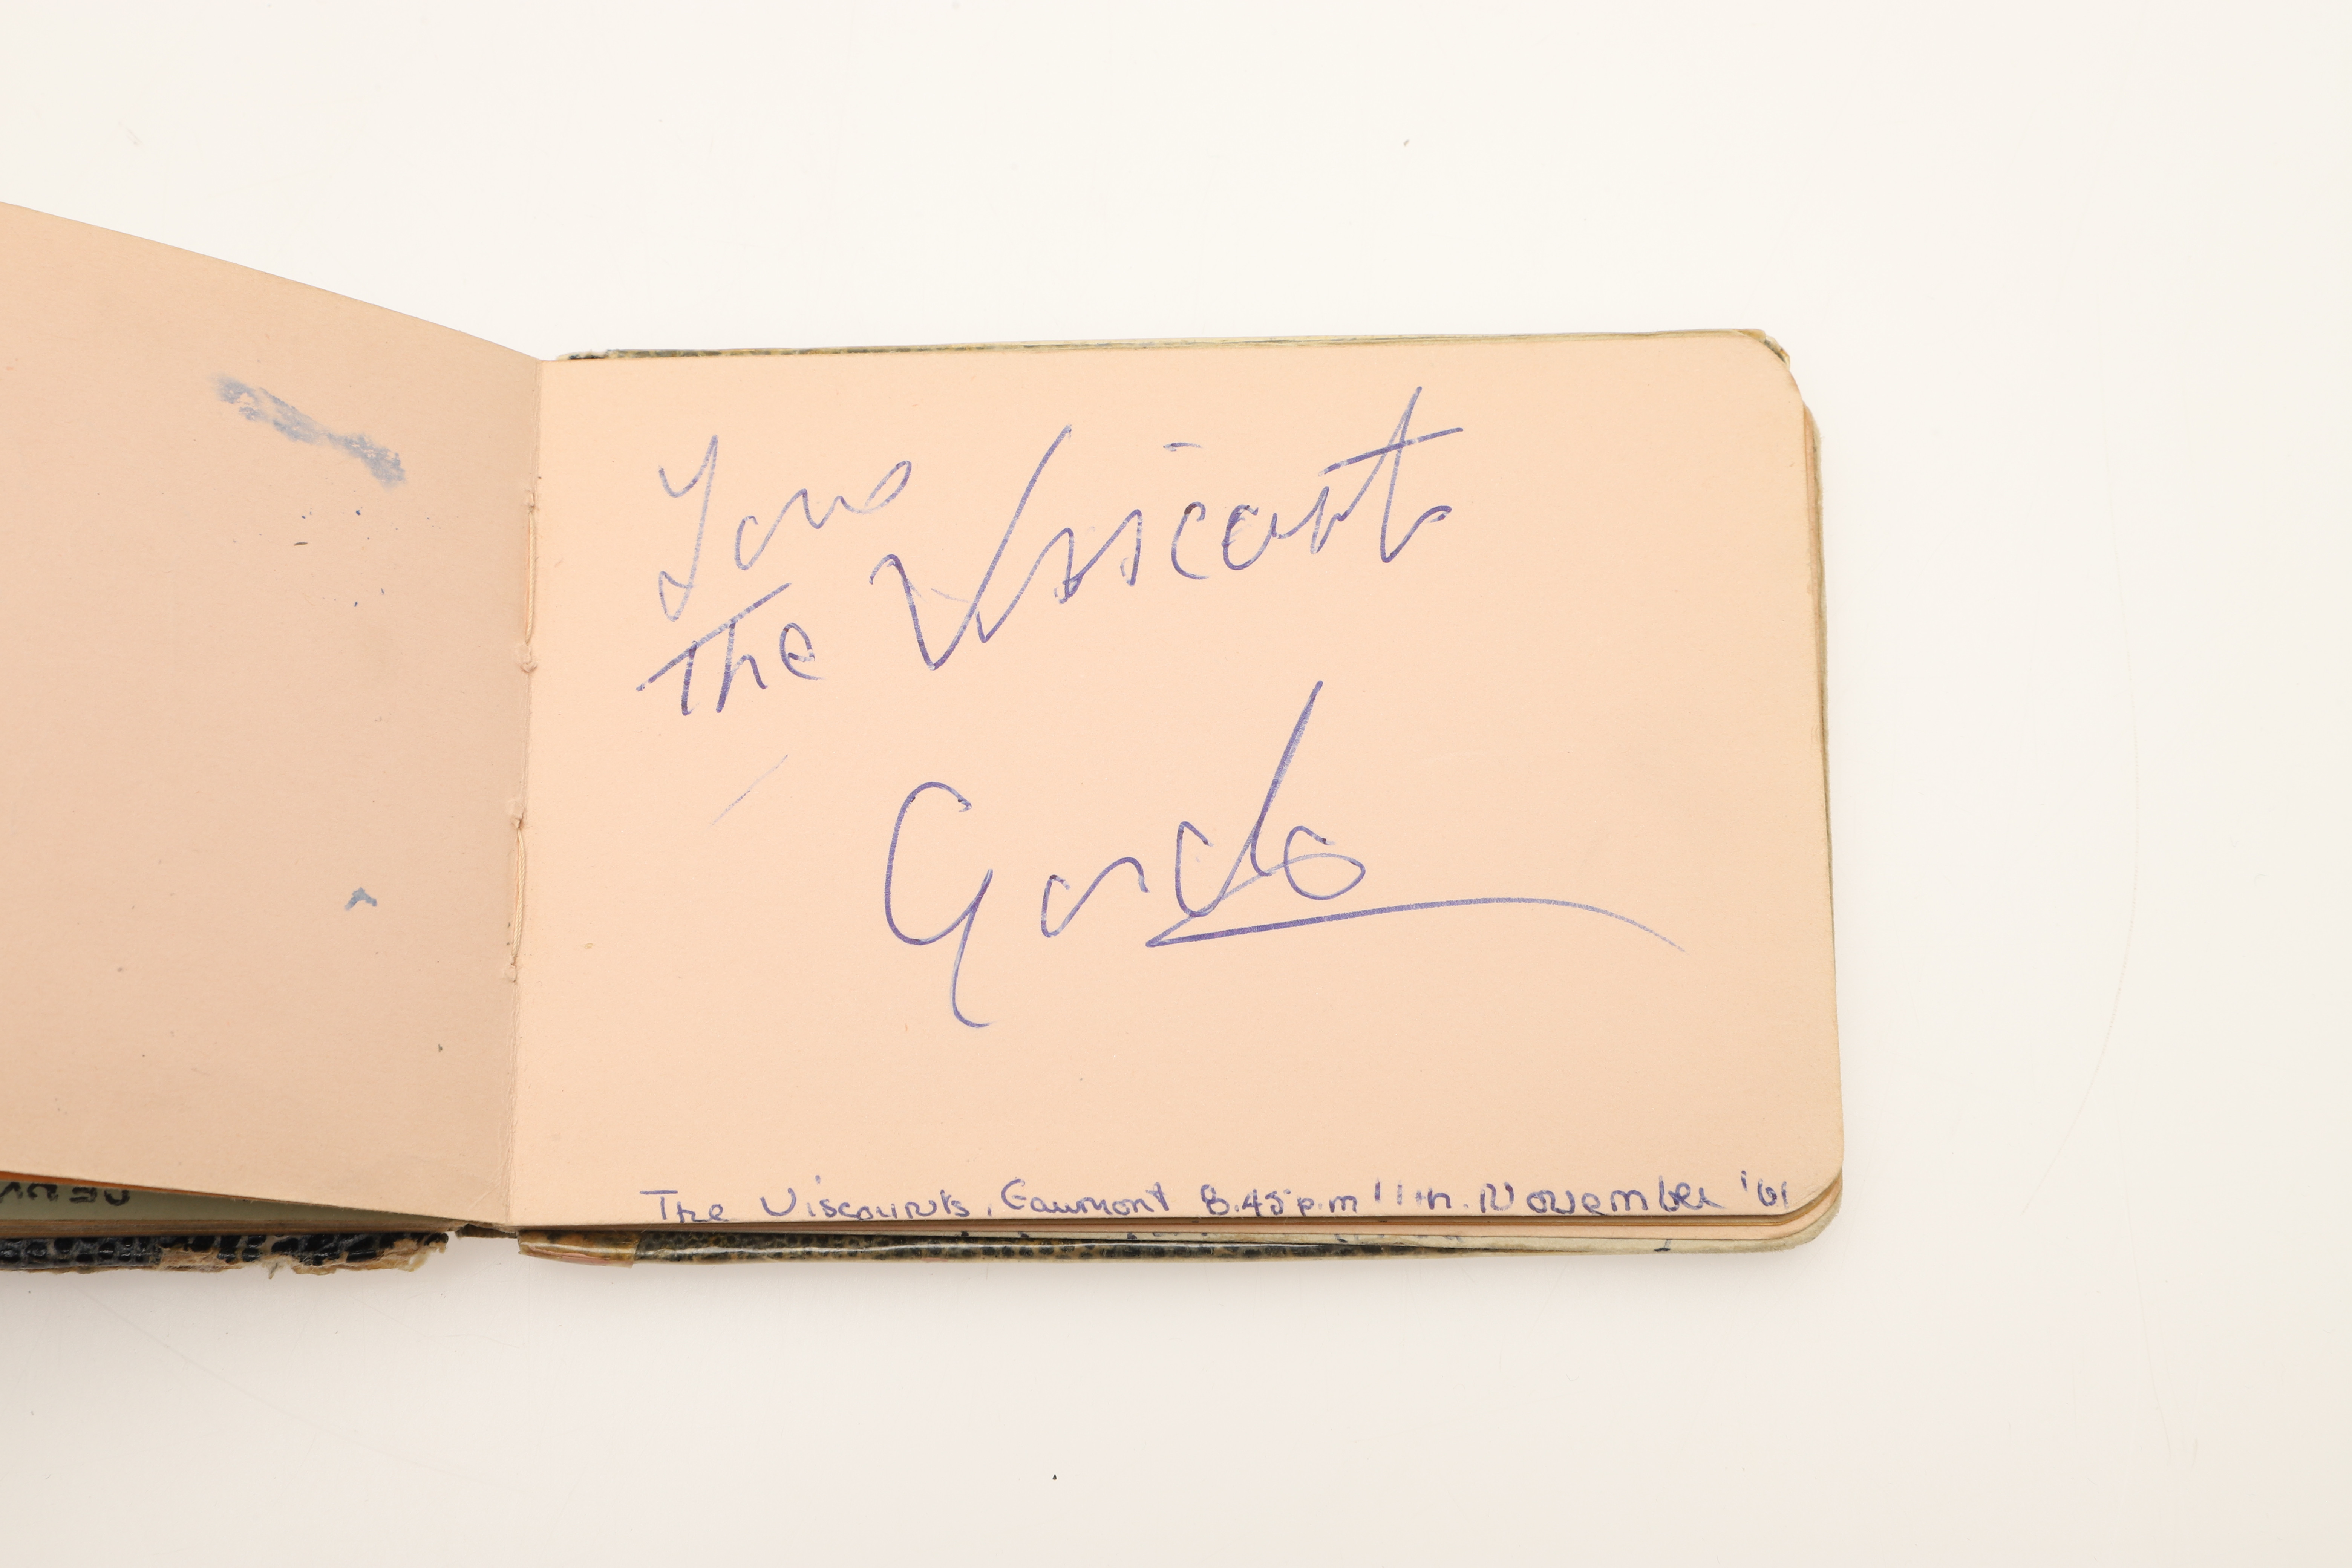 The Viscounts
Gordo
The Viscounts, Gaumont 8.45 p.m 11th. November '61